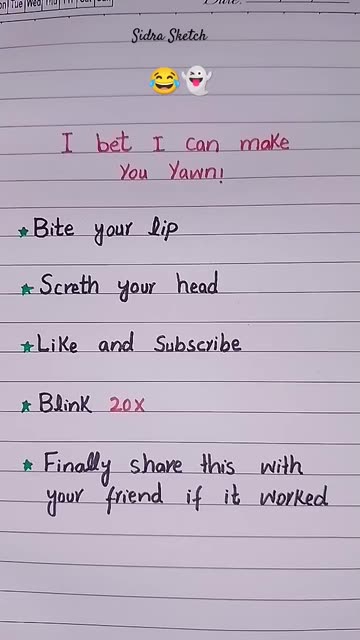 Tue Wed Thu
Date:
Sidra Sketch
😂👻
I bet I can make
You Yawn!
★Bite your lip
★Screth your head
★Like and Subscribe
★Blink 20X
★Finally share this with
your friend if it worked